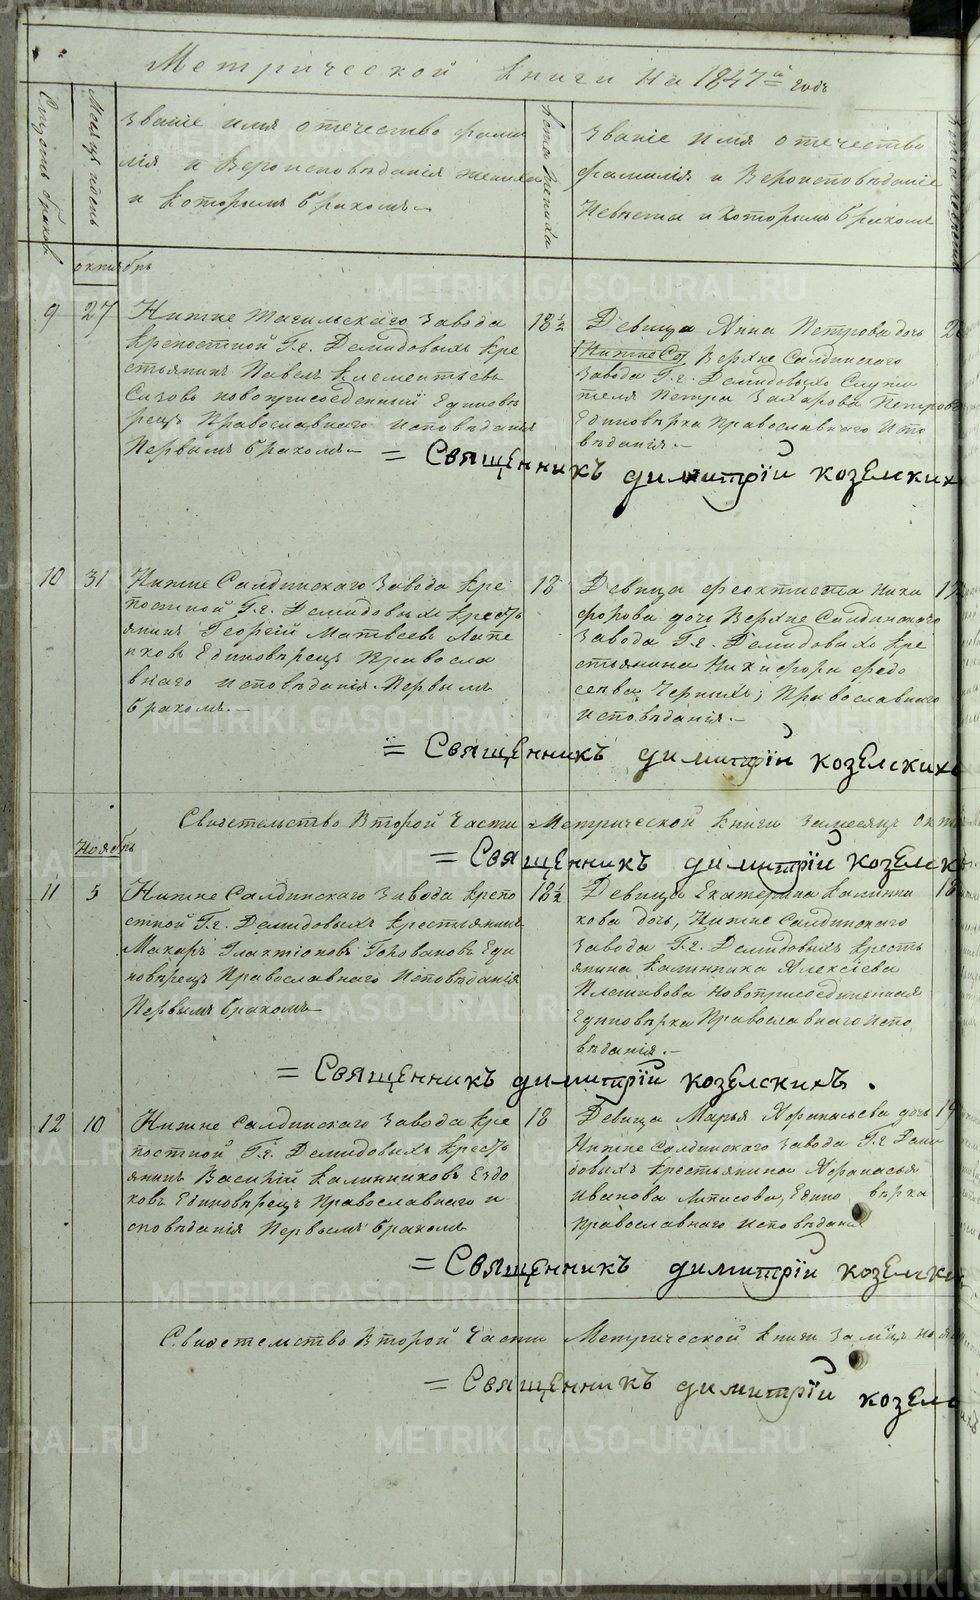 Метрической книги на 1847й годъ
Счетъ браковъ
Месяцъ и день
Званіе имя отечество фами
лія и Вероисповѣданія жениха
и Которымъ бракомъ.
Лета Жениха
Званіе Имя отечество
фамилія и Вероисповѣданіе
Невѣсты и Которымъ бракомъ
октябрь
9
27
Нижне Тагильскаго Завода
крепостной Г.г. Демидовыхъ кре
стьянинъ Павелъ Клементьевъ
Сизовъ новоприсоединенный Единовѣ
рецъ Православнаго Исповѣданія
Первымъ бракомъ.
18½
Девица Анна Петрова дочь
Верхне Салдинскаго
Завода Г.г. Демидовыхъ Служи
теля Петра Захарова Петрова
Единовѣрка Православнаго Испо
вѣданія.
= Священникъ димитрїй козелских
10
31
Нижне Салдинскаго Завода Кре
постной Г.г. Демидовыхъ кресть
янинъ Георгій Матвеевъ Лапе
нковъ Единовѣрецъ Правосла
внаго исповѣданія Первымъ
бракомъ.
18
Девица феоктиста Ники
форова дочь Верхне Салдинскаго
Завода Г.г. Демидовыхъ кре
стьянина Никифора федо
сеева Черныхъ; Православнаго
исповѣданія.
= Священникъ димитрїй козелскихъ
Свидетельство Второй Части Метрической Книги за месяцъ Окт
= Священникъ димитрїй козелск
Ноябрь
11
5
Нижне Салдинскаго Завода крепо
стной Г.г. Демидовыхъ крестьянинъ
Макаръ Галактіоновъ Головановъ Еди
новѣрецъ Православнаго Исповѣданія
Первымъ бракомъ
18½
Девица Екатерина Калинни
кова дочь, Нижне Салдинскаго
Завода Г.г. Демидовыхъ кресть
янина Калинника Алексіева
Плешивова новоприсоединенная
Единовѣрка Православнаго Испо
вѣданія.
= Священникъ димитрїй козелскихъ.
12
10
Нижне Салдинскаго Завода Кре
постной Г.г. Демидовыхъ кресть
янинъ Василій Калинниковъ Евдо
ковъ Единовѣрецъ Православнаго и
сповѣданія Первымъ бракомъ
18
Девица Марья Афонасьева дочь
Нижне Салдинскаго Завода Г.г. Деми
довыхъ крестьянина Афонасья
Иванова Единовѣрка
Православнаго Исповѣданія
= Священникъ димитрїй козелски
Свидетельство Второй Части Метрической Книги За
= Священникъ димитрїй козелс
METRIKI.GASO-URAL.RU